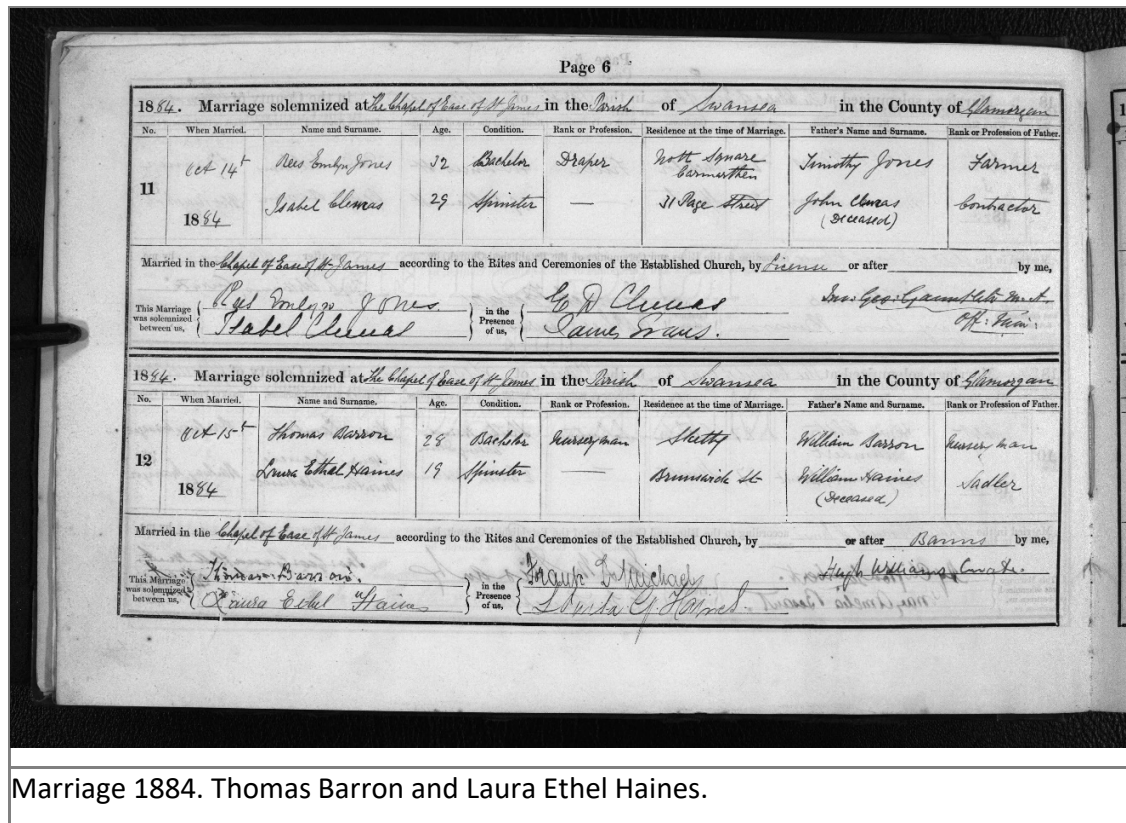 Page 6
1884. Marriage solemnized at The Chapel of Ease of St James in the Parish of Swansea in the County of Glamorgan
No. When Married. Name and Surname. Age. Condition. Rank or Profession. Residence at the time of Marriage. Father's Name and Surname. Rank or Profession of Father.
11 Oct 14t 1884 Rees Emlyn Jones 32 Bachelor Draper Nott Square Carmarthen Timothy Jones Farmer
Isabel Clemas 29 Spinster — 31 Page Street John Clemas (Deceased) Contractor
Married in the Chapel of Ease of St James according to the Rites and Ceremonies of the Established Church, by License or after by me,
This Marriage was solemnized between us, Rees Emlyn Jones in the Presence of us, E D Clemas Off: Min:
Isabel Clemas James Evans.
1884. Marriage solemnized at The Chapel of Ease of St James in the Parish of Swansea in the County of Glamorgan
No. When Married. Name and Surname. Age. Condition. Rank or Profession. Residence at the time of Marriage. Father's Name and Surname. Rank or Profession of Father.
12 Oct 15t 1884 Thomas Barron 28 Bachelor Nurseryman Sketty William Barron Nurseryman
Laura Ethel Haines 19 Spinster — Brunswick St William Haines (Deceased) Sadler
Married in the Chapel of Ease of St James according to the Rites and Ceremonies of the Established Church, by or after Banns by me,
This Marriage was solemnized between us, Thomas Barron in the Presence of us, Frank Hugh Williams, Curate.
Laura Ethel Haines Haines.
Marriage 1884. Thomas Barron and Laura Ethel Haines.